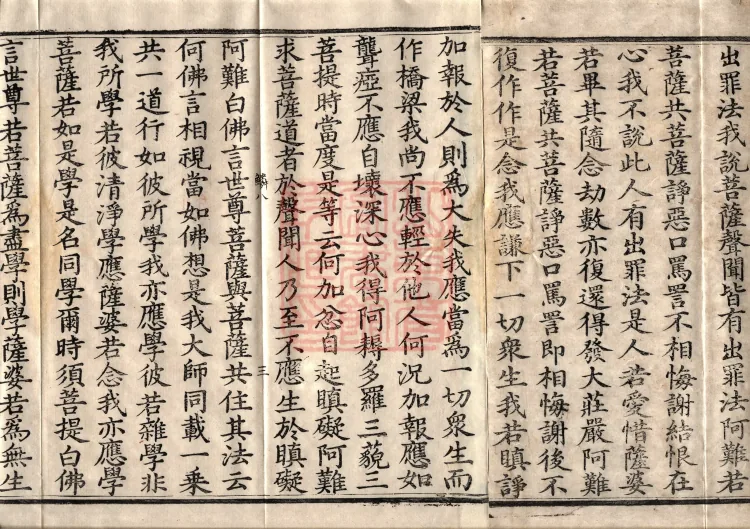 出罪法我說菩薩聲聞皆有出罪法阿難若
菩薩共菩薩諍惡口罵詈不相悔謝結恨在
心我不說此人有出罪法是人若愛惜薩婆
若畢其隨念劫數亦復還得發大莊嚴阿難
若菩薩共菩薩諍惡口罵詈即相悔謝後不
復作作是念我應謙下一切衆生我若瞋諍
加報於人則爲大失我應當爲一切衆生而
作橋梁我尚不應輕於他人何況加報應如
聾瘂不應自壞深心我得阿耨多羅三藐三
菩提時當度是等云何加忿自起瞋礙阿難
求菩薩道者於聲聞人乃至不應生於瞋礙
三
阿難白佛言世尊菩薩與菩薩共住其法云
何佛言相視當如佛想是我大師同載一乗
共一道行如彼所學我亦應學彼若雜學非
我所學若彼清淨學應薩婆若念我亦應學
菩薩若如是學是名同學爾時須菩提白佛
言世尊若菩薩爲盡學則學薩婆若爲無生